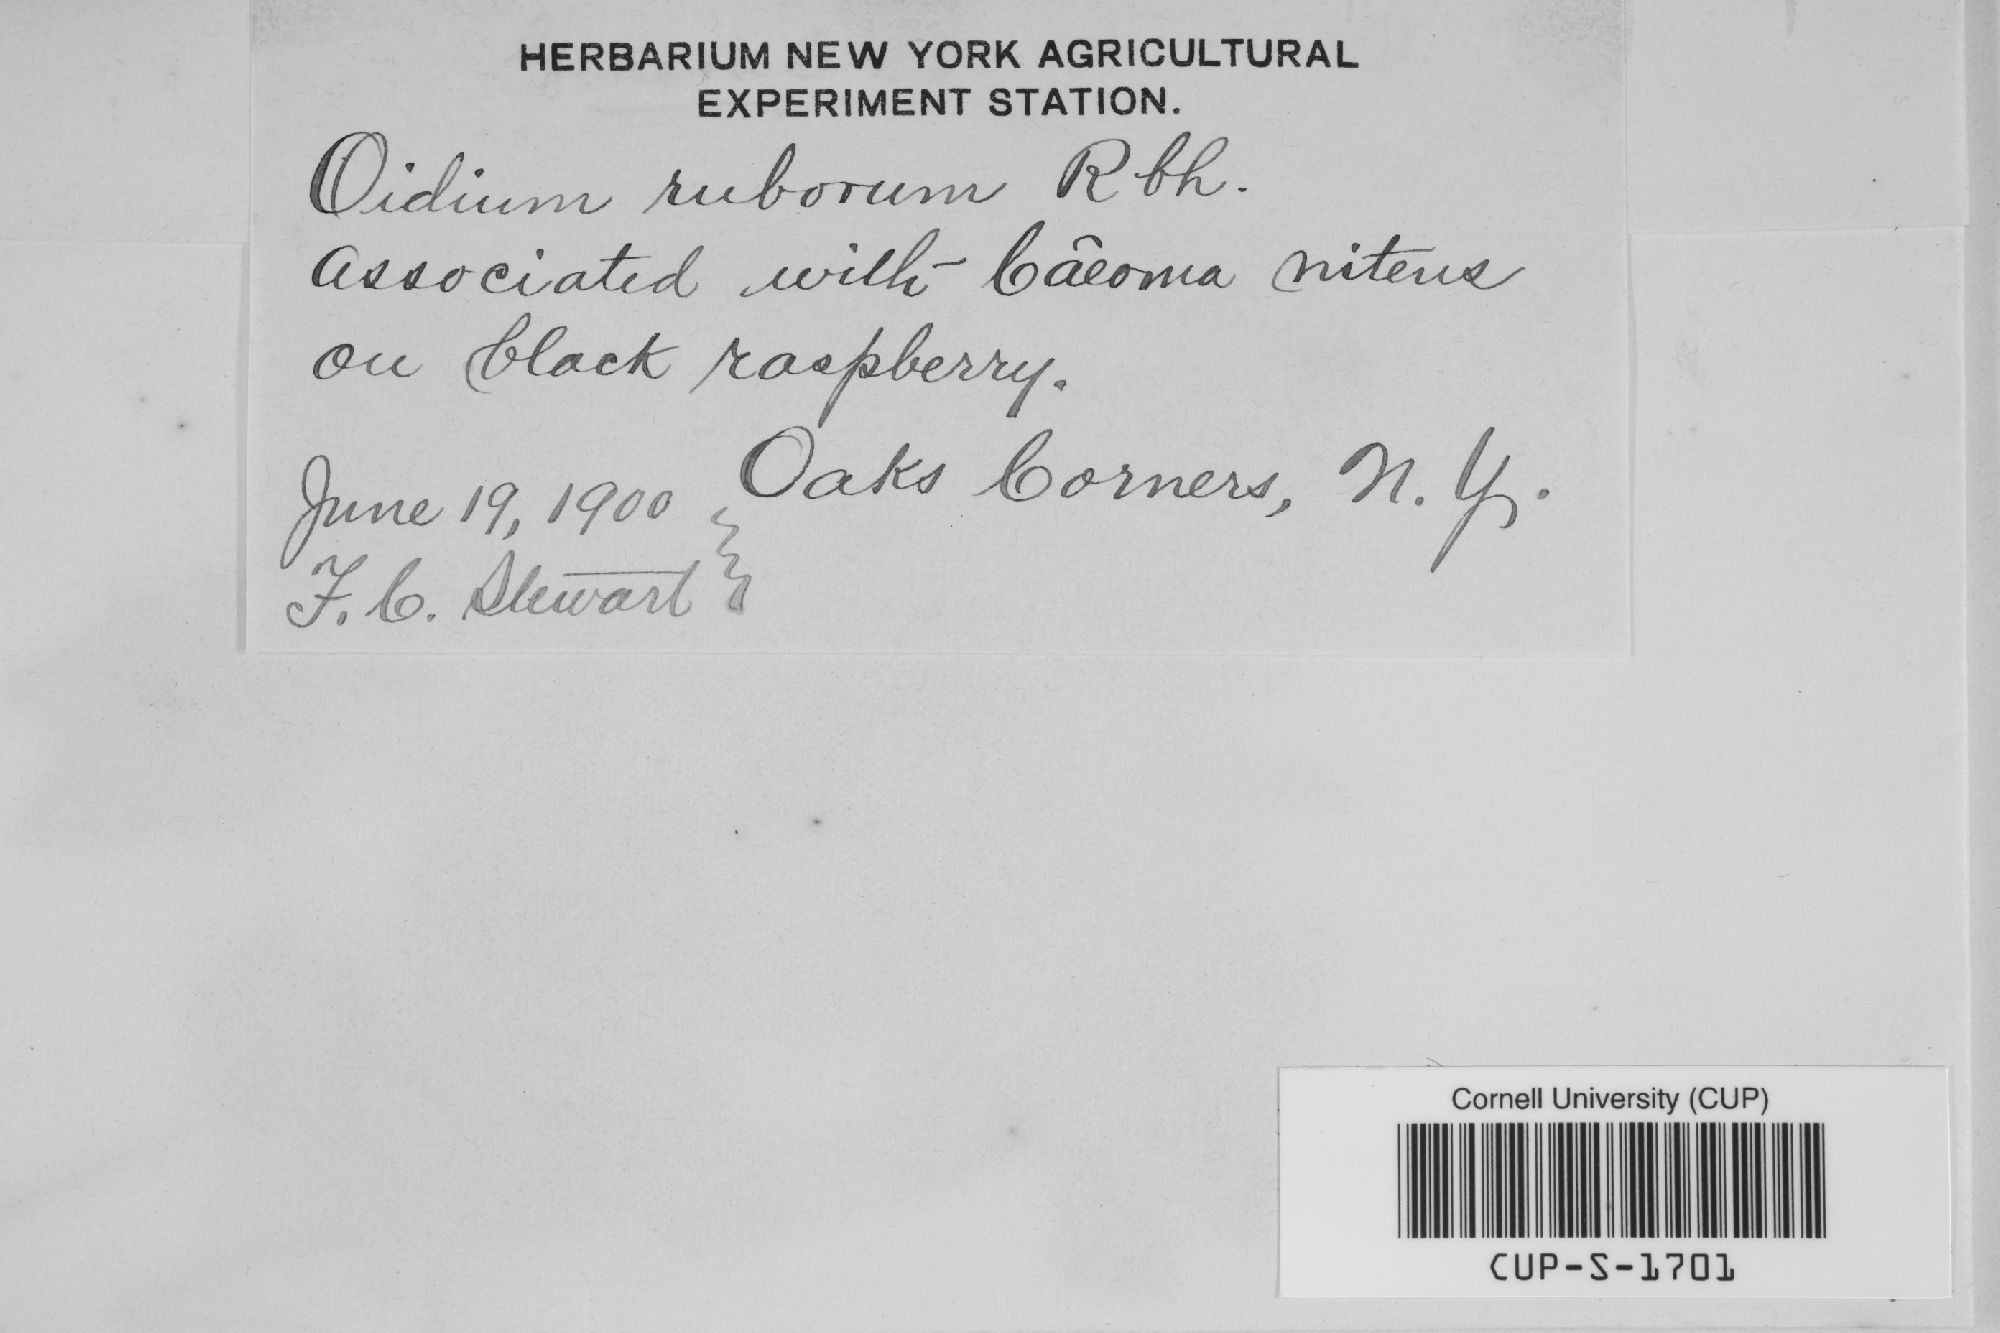 HERBARIUM NEW YORK AGRICULTURAL
EXPERIMENT STATION.
Oidium ruborum Rbh.
Associated with Câeoma nitens
on black raspberry.
June 19, 1900 } Oaks Corners, N. Y.
F. C. Stewart
Cornell University (CUP)
CUP-S-1701